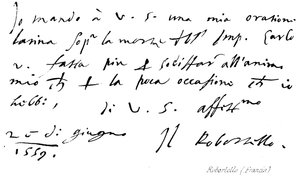 Io mando à V. S. una mia oratione
latina sop.ª la morte dell' Imp. Carlo
V. fatta piu per sodisfar all'animo
mio che per la poca occasione che io
hebbi, di V. S. affett.mo
25 di giugno Il Robortello.
1559.
Robortello (Franc.)